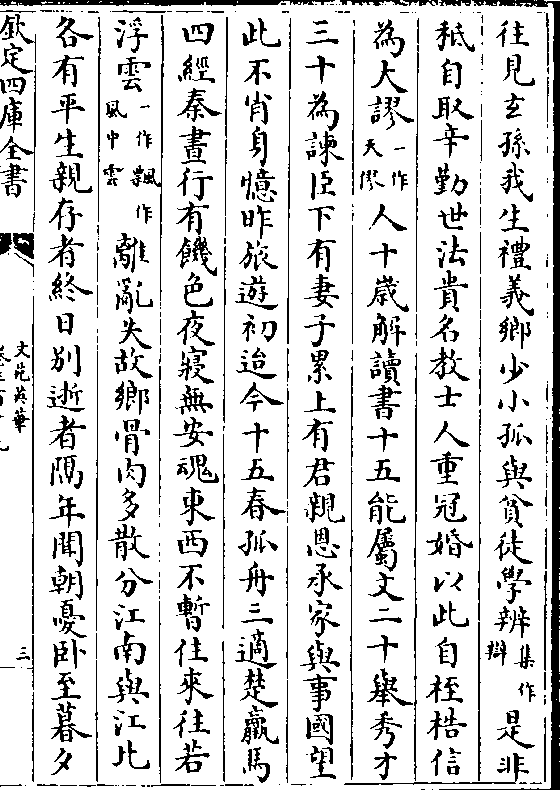 往見玄孫我生禮義鄉少小孤與貧徒學辨集作辯是非
秪自取辛勤世法貴名教士人重冠婚以此自桎梏信
為大謬一作天僇人十歲解讀書十五能屬文二十舉秀才
三十為諫臣下有妻子累上有君親恩承家與事國望
此不肖身憶昨旅遊初迨今十五春孤舟三適楚羸馬
四經秦晝行有饑色夜寢無安魂東西不暫住來往若
浮雲一作飄作風中雲離亂失故鄉骨肉多散分江南與江北
各有平生親存者終日別逝者隔年聞朝憂卧至暮夕
欽定四庫全書
文苑英華
三